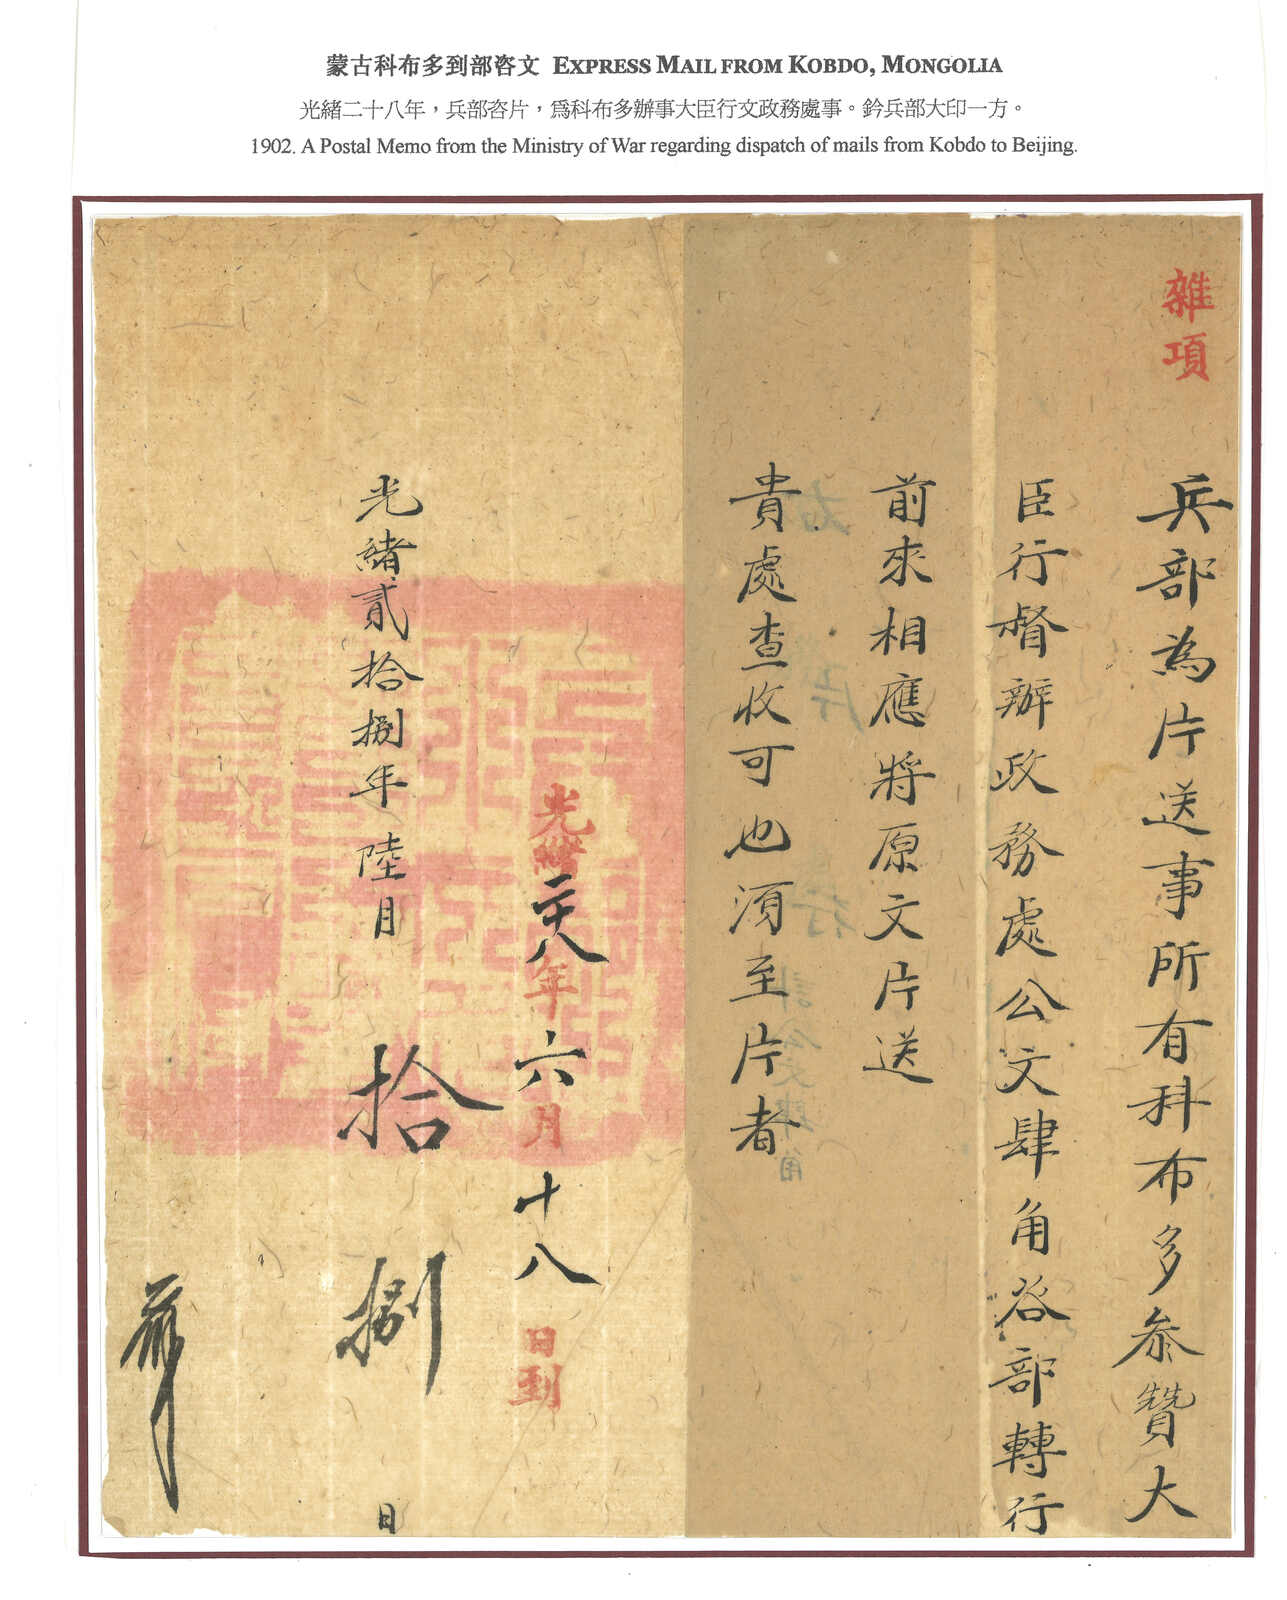 蒙古科布多到部咨文 EXPRESS MAIL FROM KOBDO, MONGOLIA
光緒二十八年，兵部咨片，爲科布多辦事大臣行文政務處事。鈐兵部大印一方。
1902. A Postal Memo from the Ministry of War regarding dispatch of mails from Kobdo to Beijing.
雜項
兵部為片送事所有科布多叅贊大
臣行督辦政務處公文肆角咨部轉行
前來相應將原文片送
貴處查收可也須至片者
光緒二十八年六月十八日到
光緒貳拾捌年陸月拾捌日